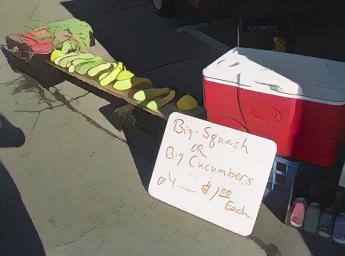 Big. Squash
OR
Big Cucumbers
$1.00
Each